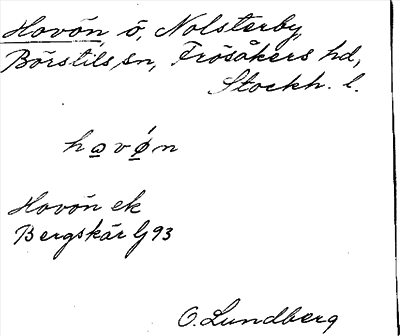 Hovön, ö, Nolsterby,
Börstils sn, Frösåkers hd,
Stockh. l.
hovǿn
Hovön ek
Bergskär G 93
O. Lundberg